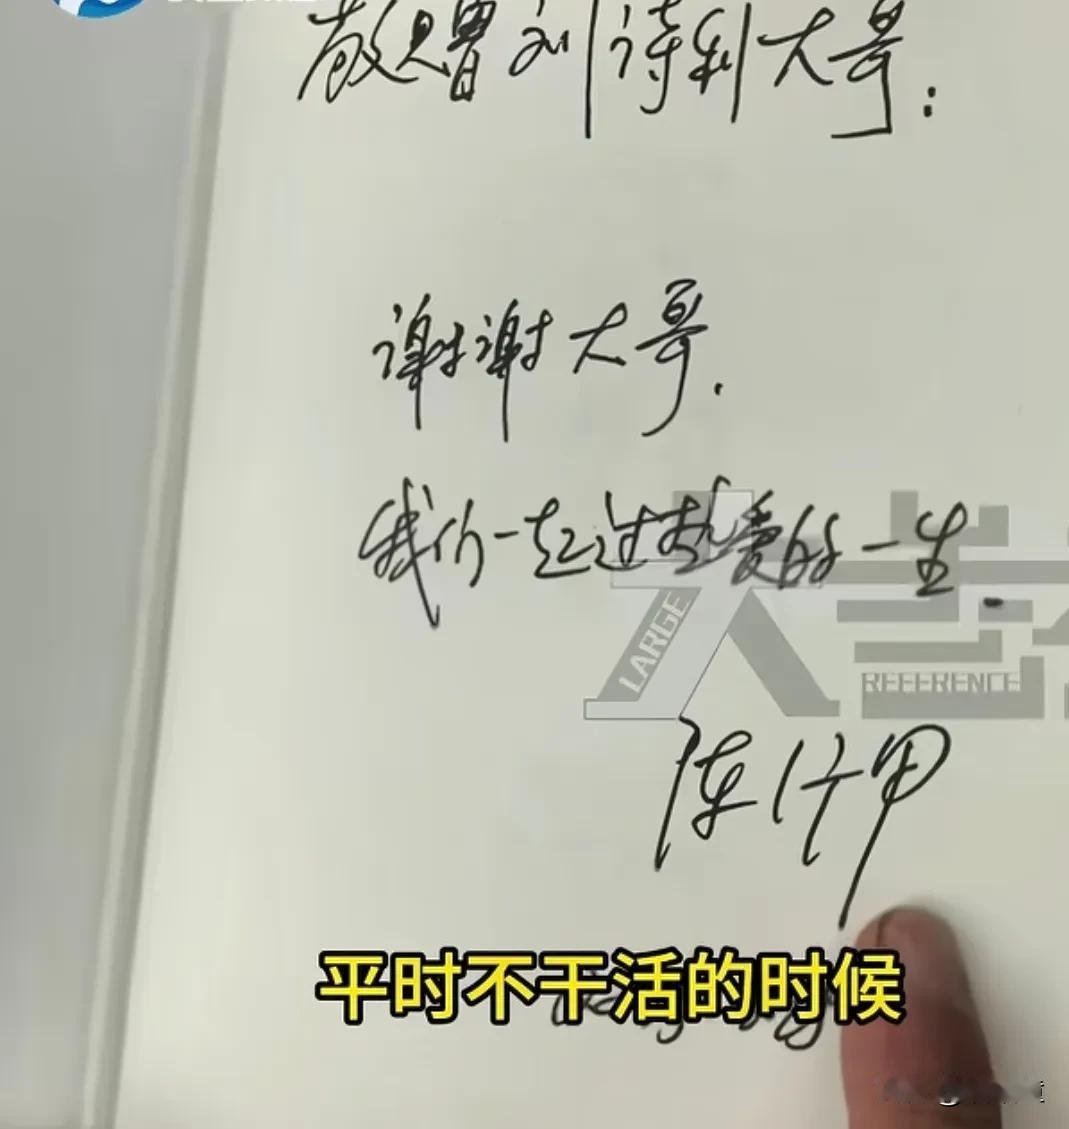 敬赠刘诗利大哥:
谢谢大哥.
我们一起过热爱的一生.
LARGE
REFERENCE
陈行甲
平时不干活的时候